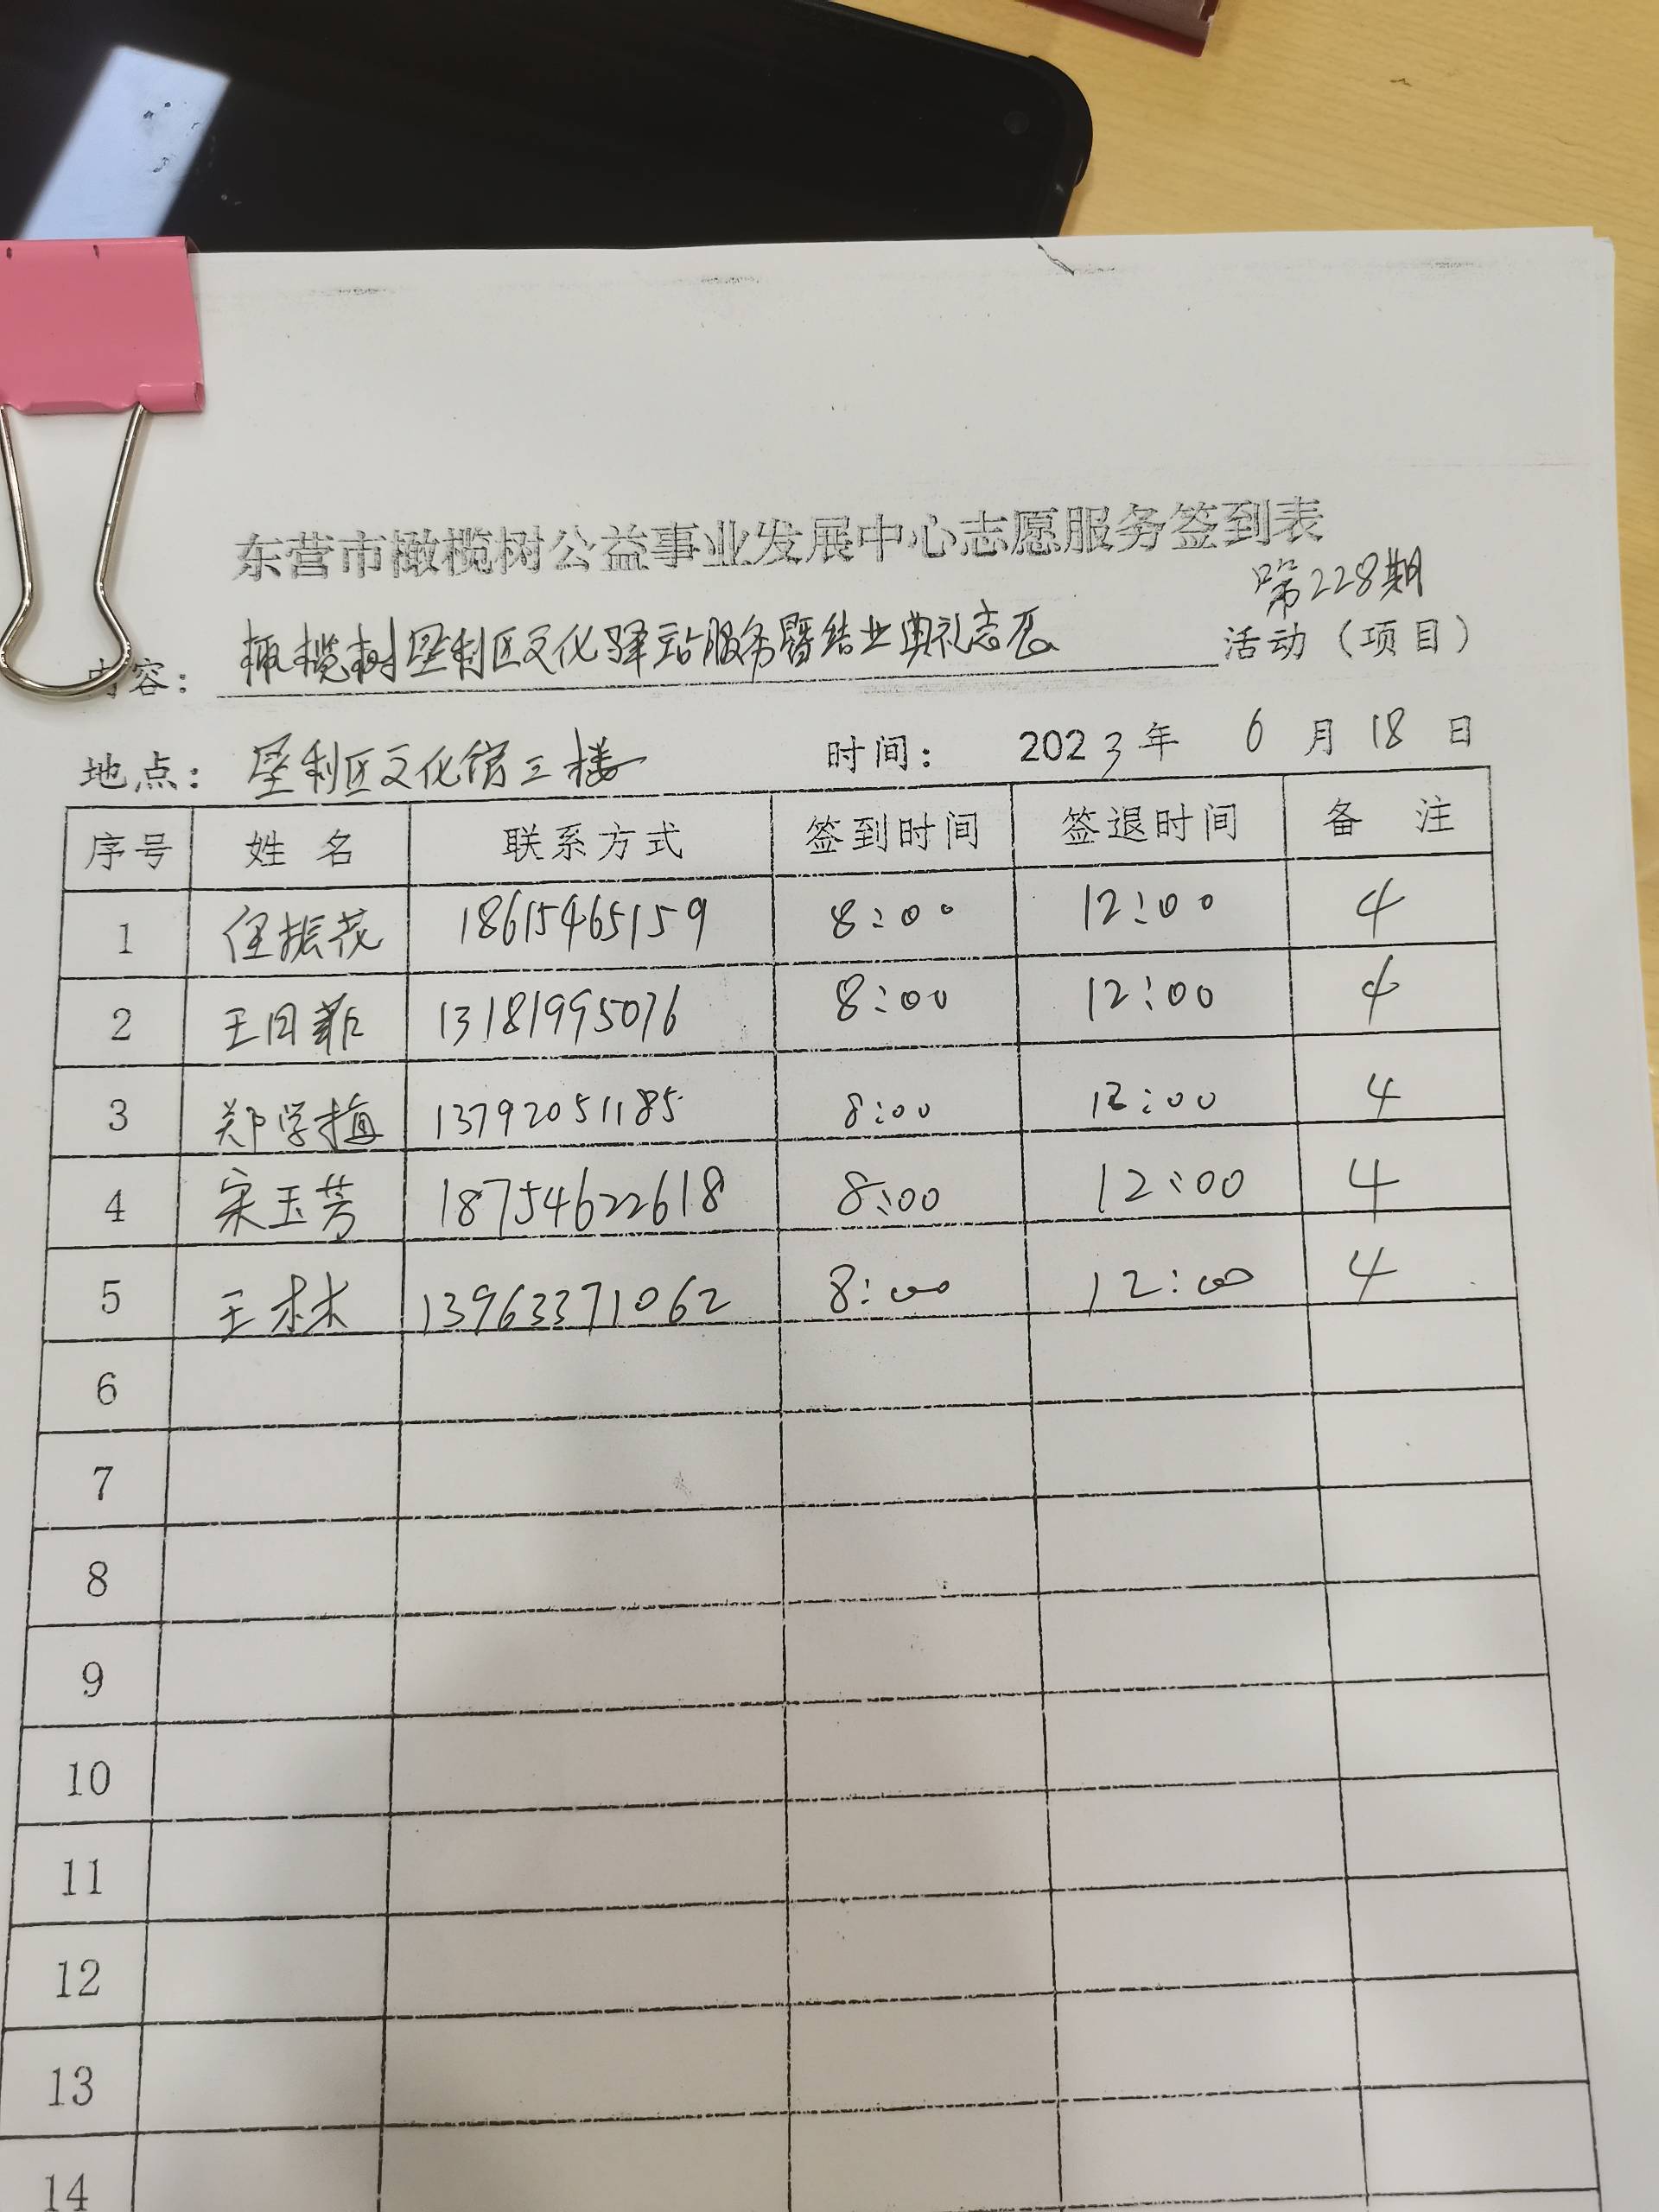 东营市橄榄树公益事业发展中心志愿服务签到表
第228期
内容：橄榄树垦利区文化驿站服务暨结业典礼志愿 活动（项目）
地点：垦利区文化馆三楼 时间：2023年 6月18日
序号 姓名 联系方式 签到时间 签退时间 备 注
1 任振花 18615465159 8:00 12:00 4
2 王日 13181995076 8:00 12:00 4
3 郑学梅 13792051185 8:00 12:00 4
4 宋玉芳 18754622618 8:00 12:00 4
5 王林 13963371062 8:00 12:00 4
6
7
8
9
10
11
12
13
14